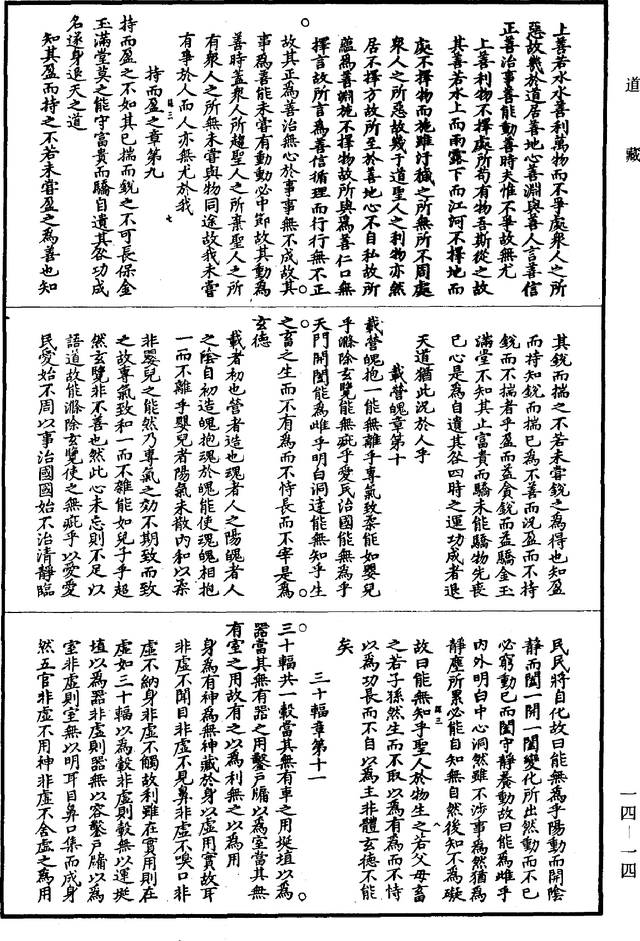 道藏
上善若水水善利萬物而不爭處衆人之所
惡故幾於道居善地心善淵與善人言善信
正善治事善能動善時夫惟不爭故無尤
上善利物不擇處所苟有物吾斯從之故
其善若水上而雨露下而江河不擇地而
處不擇物而施雖汙穢之所無所不周處
衆人之所惡故幾于道聖人之利物亦然
居不擇方故所至於善地心不自私故所
蘊爲善淵施不擇物故所與爲善仁口無
擇言故所言爲善信循理而行行無不正
故其正爲善治無心於事事無不成故其
事爲善能未嘗有動動必中節故其動爲
善時蓋衆人所趨聖人之所棄聖人之所
有衆人之所無未嘗與物同途故我未嘗
有爭於人而人亦無尤於我
持而盈之章第九
持而盈之不如其已揣而銳之不可長保金
玉滿堂莫之能守富貴而驕自遺其咎功成
名遂身退天之道
知其盈而持之不若未嘗盈之爲善也知
其銳而揣之不若未嘗銳之爲得也知盈
而持知銳而揣已爲不善而況盈而不持
銳而不揣者乎盈而益貪銳而益驕金玉
滿堂不知其止富貴而驕未能驕物先喪
已心是爲自遺其咎四時之運功成者退
天道猶此況於人乎
載營魄章第十
載營魄抱一能無離乎專氣致柔能如嬰兒
乎滌除玄覽能無疵乎愛民治國能無爲乎
天門開闔能爲雌乎明白洞達能無知乎生
之畜之生而不有爲而不恃長而不宰是爲
玄德
載者初也營者造也魂者人之陽魄者人
之陰自初造魄抱魂於魄能使魂魄相抱
一而不離乎嬰兒者陽氣未散內和以柔
非嬰兒之能然乃專氣之効不期致而致
之故專氣致和一而不雜能如兒子乎超
然玄覽非不善也然此心未忘則不足以
語道故能滌除玄覽使之無疵乎以愛愛
民愛始不周以事治國國始不治清靜臨
民民將自化故曰能無爲乎陽動而開陰
靜而闔一開一闔變化所出然動而不已
必窮動已而闔守靜養動故曰能爲雌乎
內外明白中心洞然雖不涉事爲然猶爲
靜塵所累必能自知無自然後知不爲礙
故曰能無知乎聖人於物生之若父母畜
之若子孫然生而不取以爲有爲而不恃
以爲功長而不自以爲主非體玄德不能
矣
三十輻章第十一
三十輻共一轂當其無有車之用埏埴以爲
器當其無有器之用鑿戶牖以爲室當其無
有室之用故有之以爲利無之以爲用
身爲有神爲無神藏於身以虛用實故耳
非虛不聞目非虛不見鼻非虛不嗅口非
虛不納身非虛不觸故利雖在實用則在
虛如三十輻以爲轂非虛則轂無以運埏
埴以爲器非虛則器無以容鑿戶牖以爲
室非虛則室無以明耳目鼻口集而成身
然五官非虛不用神非虛不舍虛之爲用
一四—一四